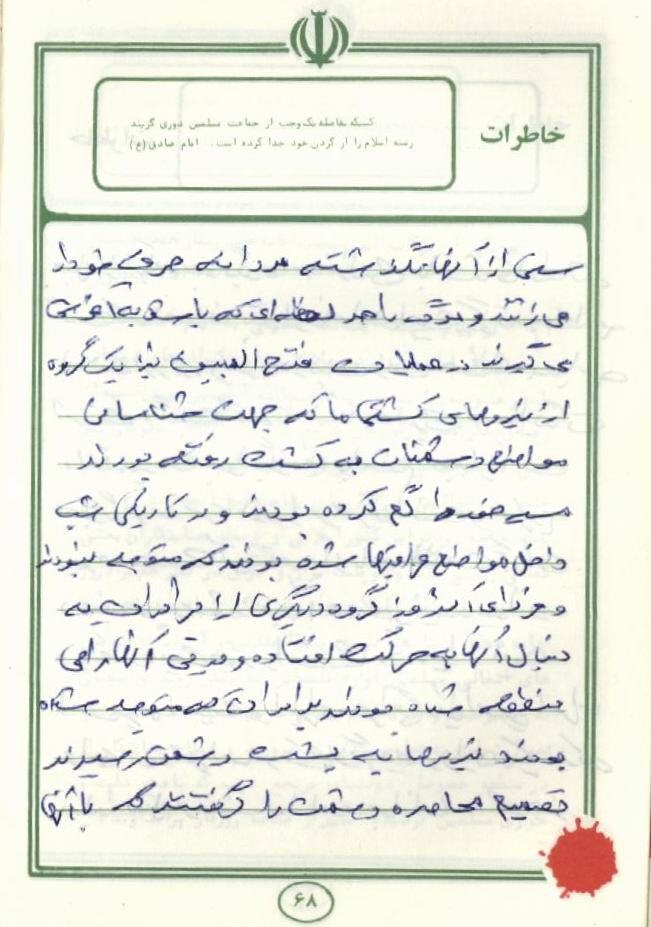 خاطرات
کسیکه بفاصله یک وجب از جماعت مسلمین دوری گزیند
رشته اسلام را از گردن خود جدا کرده است. امام صادق (ع)
از آنها نگذاشته مردانه خود را
می‌زنند و لحظه‌ای که
می گیرند در عملیات فتح المبین نیز یک گروه
از نیروهای گشتی ما که جهت شناسایی
مواضع دشمنان به گشت رفته بودند
مسیر خود را گم کرده بودند و در تاریکی شب
داخل مواضع عراقیها شده بودند که متوجه نبودند
و فردای آنروز گروه دیگری از برادران به
دنبال آنها به حرکت افتاده و وقتی آنها را می
منطقه شده بودند برادران که متوجه شده
بودند نیروها به پشت دشمن رسیدند
تصمیم محاصره دشمن را گرفتند که با آنها
۶۸